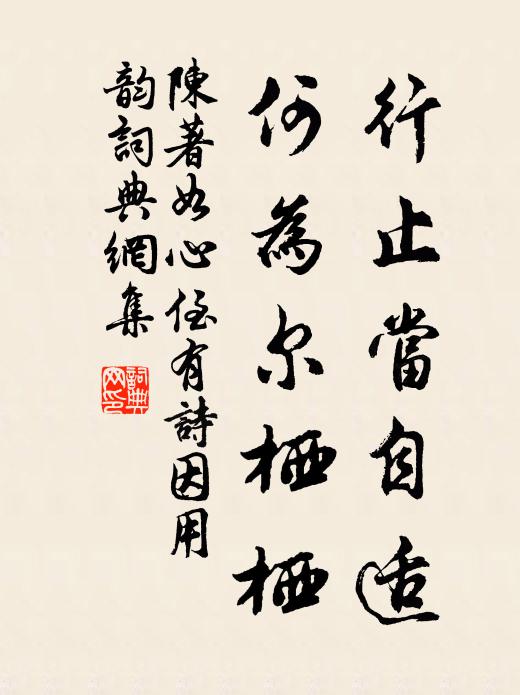 行止當自适
何為尔栖栖
陳著如心侄有詩因用
韵詞典網集
詞典網印